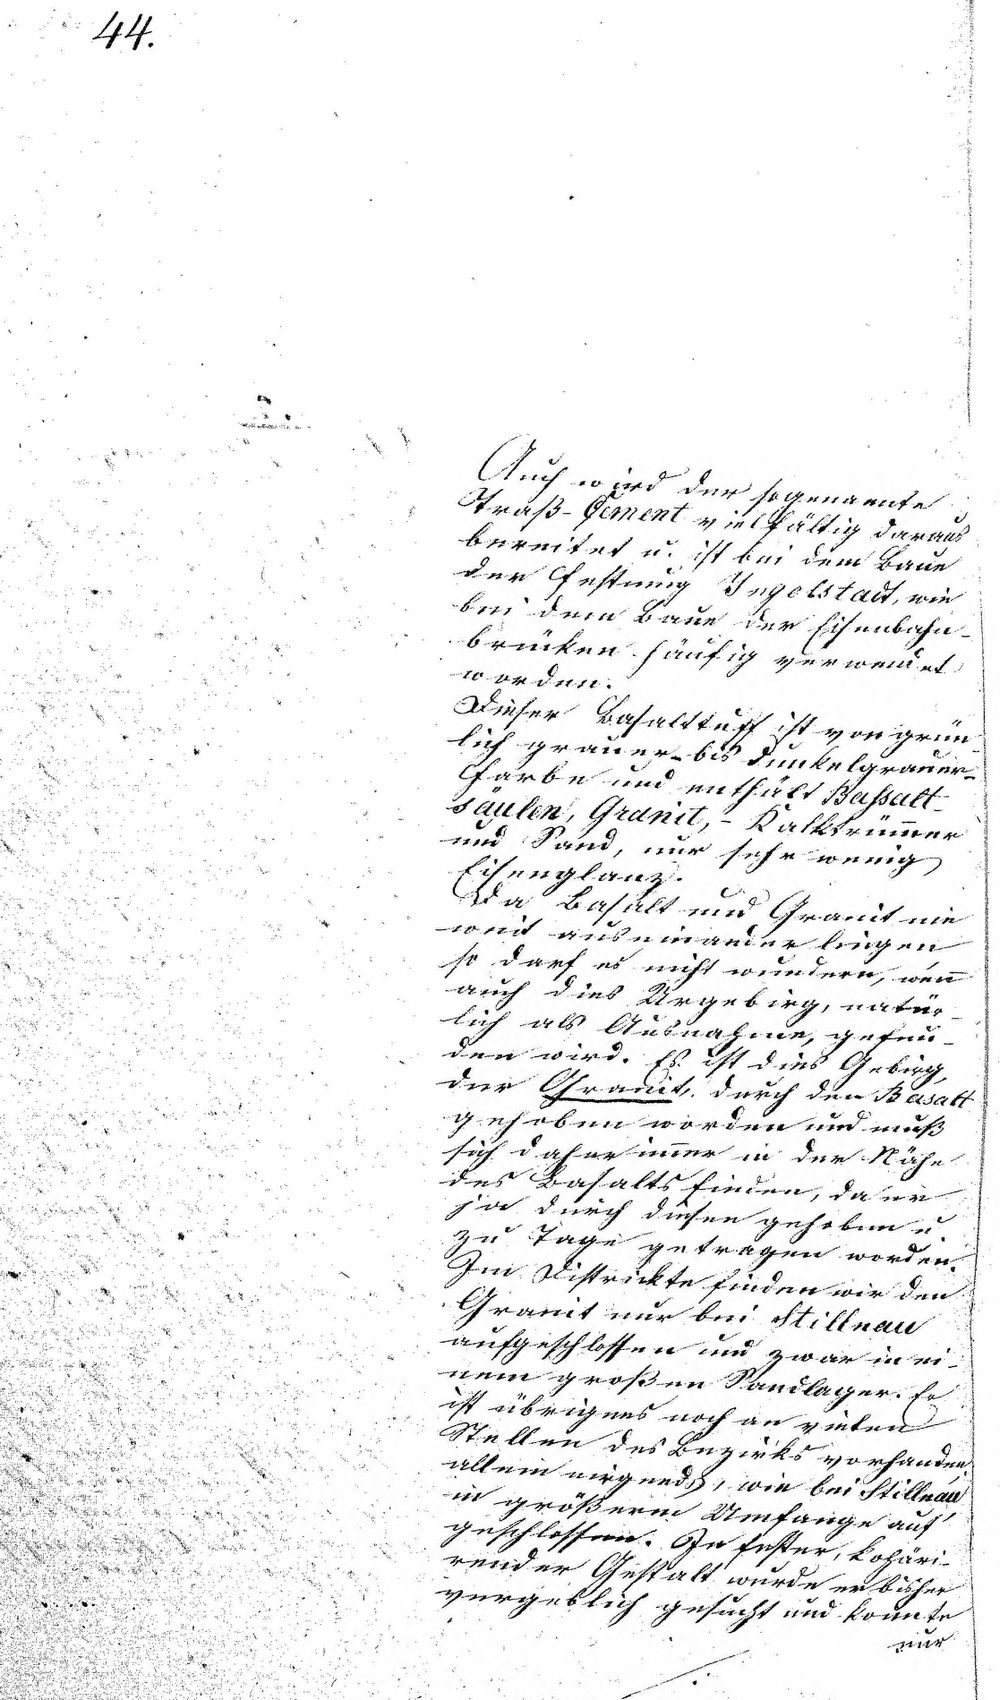 44.
Auch wird der sogenannte
Straß-Cement vielfältig daraus
bereitet u. ist bei dem Baue
der Festung Ingolstadt, wie
bei dem Baue der Eisenbahn-
brücken häufig verwendet
worden.
Dieser Basalttuff ist von grün
lich grauer- bis dunkelgrauer-
Farbe und enthält Bassalt-
säulen, Granit,- Kalktrümmer
und Sand, nur sehr wenig
Eisenglanz.
Da Basalt und Granit nie
weit auseinander liegen
so darf es nicht wundern, wenn
auch dies Urgebirg, natür-
lich als Ausnahme, gefun-
den wird. Es ist dies Gebirg,
der Granit, durch den Basalt
gehoben worden und muß
sich daher immer in der Nähe
des Basalts finden, da er
ja durch diesen gehoben u.
zu Tage getragen worden.
Im Districkte finden wir den
Granit nur bei Stillnau
aufgeschlossen und zwar in ei-
nem großen Sandlager. Er
ist übrigens noch an vielen
Stellen des Bezirks vorhanden
allein nirgends, wie bei Stillnau
in größerem Umfange auf
geschlossen. In fester, kohäri-
render Gestalt wurde er bisher
vergeblich gesucht und konnte
nur